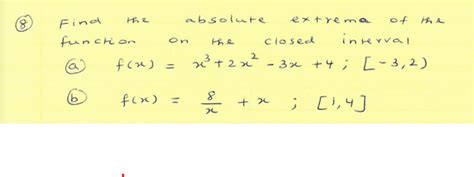 ⑧ Find the absolute extrema of the
function on the closed interval
ⓐ f(x) = x³ + 2x² - 3x + 4 ; [-3,2)
ⓑ f(x) = 8/x + x ; [1,4]